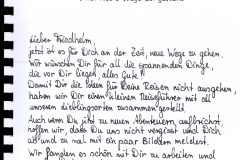 lieber Friedhelm,
jetzt ist es für Dich an der Zeit, neue Wege zu gehen.
Wir wünschen Dir für all die spannenden Dinge,
die vor Dir liegen, alles Gute!
Damit Dir die Ideen für Deine Reisen nicht ausgehen,
haben wir Dir einen kleinen Reiseführer mit all
unseren Lieblingsorten zusammengestellt.
Auch wenn Du jetzt zu neuen Abenteuern aufbrichst,
hoffen wir, dass Du uns nicht vergisst und Dich
ab und zu mal mit ein paar Bildern meldest.
Wir fanden es schön mit Dir zu arbeiten und